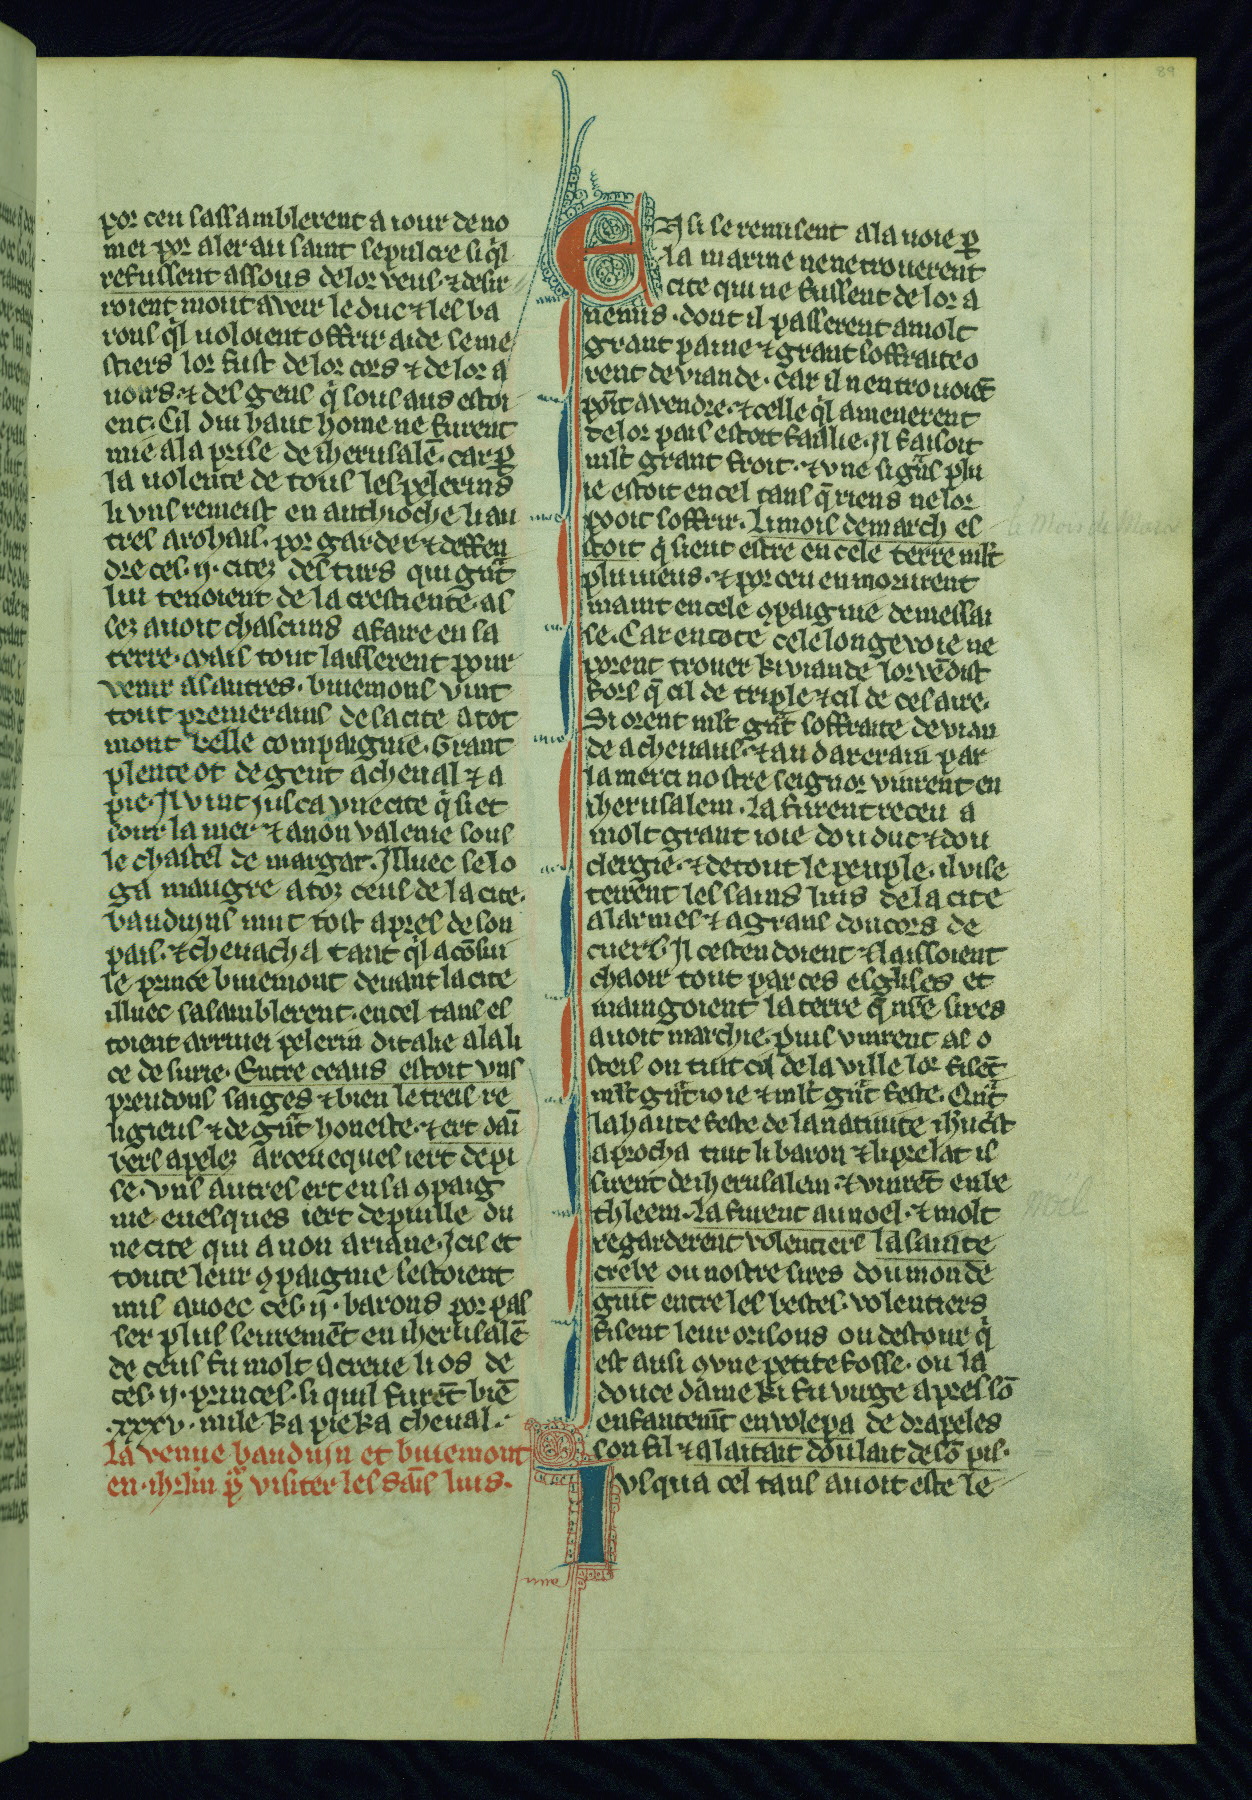 89
por ceu sassamblerent a iour de no
mei por aler au saint sepulcre si ql
refussent assous de lor veus ⁊ desir
roient mout aveir le duc ⁊ les ba
rons ql voloient offrir aide se me
stiers lor fust de lor cors ⁊ de lor a
uoirs ⁊ des gens q̄ sous aus estoi
ent. Cil dui haut home ne furent
mie ala prise de iherusalē. car ꝑ
la volente de tous les pelerins
li vns remest en anthioche li au
tres arohais. por garder ⁊ deffen
dre ces .ij. citez des turs qui gūt
lui tenoient de la crestiente. as
sez auoit chascuns afaire en sa
terre. mais tout laisserent pour
venir as autres. buiemons vint
tout premerains de sa cite a tot
mout belle compaignie. Grant
plente ot de gent a cheual ⁊ a
pie. Il vint iusca vne cite q̄ siet
sour la mer ⁊ anon valenie sous
le chastel de margar. Illuec se lo
ga maugre a toz ceus de la cite.
bauduyns uint tost apres de son
pais. ⁊ cheuacha tant ql a cōsui
le prince buiemont deuant la cite
illuec sasamblerent. encel tans es
toient arriuei pelerin ditalie alali
ce de surie. Entre ceaus estoit vns
preudons saiges ⁊ bien letreis re
ligieus ⁊ de gūt honeste. ⁊ ert dāi
bers apelez arceuequesiert de pi
se. vns autres ert en sa ꝯpaig
nie euesques iert de puille du
ne cite qui a non ariane. Icis et
toute leur ꝯpaignie sestoient
mis auoec ces .ij. barons por pas
ser plus seuremēt en iherusalē
de ceus fu molt acreue li os de
ces .ij. princes. si quil furēt biē
.xxxv. mile ka pie ka cheual.
La venue bauduyn et buiemont
en ihrlm ꝑ visiter les sāis luis.
Ensi se remisent ala uoie ꝑ
la marine ne ne trouerent
cite qui ne fussent de lor a
nemis. dont il passerent a molt
grant paine ⁊ grant soffraite o
rent de viande. car il nen trouoiēt
pōit a vendre. ⁊ celle ql amenerent
de lor pais estoit faillie. Il faisoit
mlt grant froit. ⁊ vne si gūs plu
ie estoit en cel tans q̄ riens ne lor
pooit soffrir. Li mois de march es
toit q̄ sient estre en cele terre mlt
pluuieus. ⁊ por ceu en morurent
maint en cele ꝯpaignie de messai
se. Car en tote cele longe voie ne
porent trouer ki viande lor vēdist
fors q̄ cil de triple ⁊ cil de cesaire.
Si orent mlt gūt soffraite de vian
de a cheuaus. ⁊ au darerain par
la merci nostre seignor vinrent en
iherusalem. La furent receu a
molt grant ioie dou duc ⁊ dou
clergie. ⁊ de tout le peuple. il vise
terent les sains luis de la cite
a larmes ⁊ a grans doucors de
cuers. Il cestendoient ⁊ laissoient
chaoir tout par ces esglises et
maingoient la terre q̄ nr̄e sires
auoit marchie. puis vinrent as o
steis ou tuit cil de la ville lor fisēt
mlt gūt ioie ⁊ mlt gūt feste. Qūt
la haute feste de la natiuite ihucīst
aprocha tuit li baron ⁊ li prelat is
sirent de iherusalem. ⁊ vinrēt en be
thleem. La furent au noel. ⁊ molt
regarderent volentiers la sainte
crebe ou nostre sires dou monde
guit entre les bestes. volentiers
fisent leur orisons ou destour q̄
est ausi ꝯ vne petite fosse. ou la
douce dame ki fu virge apres sō
enfantemēt envolepa de drapeles
son fil ⁊ alaitait dou lait de sō pis.
Iusqua cel tans auoit este le
li Mois de Mars
Noël